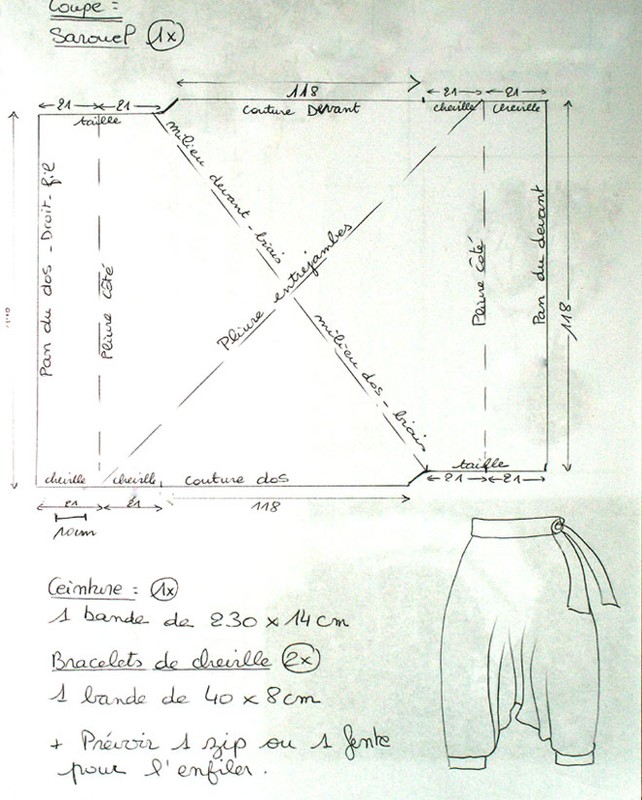 Coupe :
Sarouel 1x
118
21 21
21 21
taille
couture Devant
cheville cheville
milieu devant - biais
Pan du dos - Droit-fil
Pliure côté
Pliure entrejambes
Pliure côté
Pan du devant
118
milieu dos - biais
taille
cheville cheville
couture dos
21 21
21 21
118
10cm
Ceinture : 1x
1 bande de 230 x 14 cm
Bracelets de cheville 2x
1 bande de 40 x 8cm
+ Prévoir 1 zip ou 1 fente
pour l'enfiler.